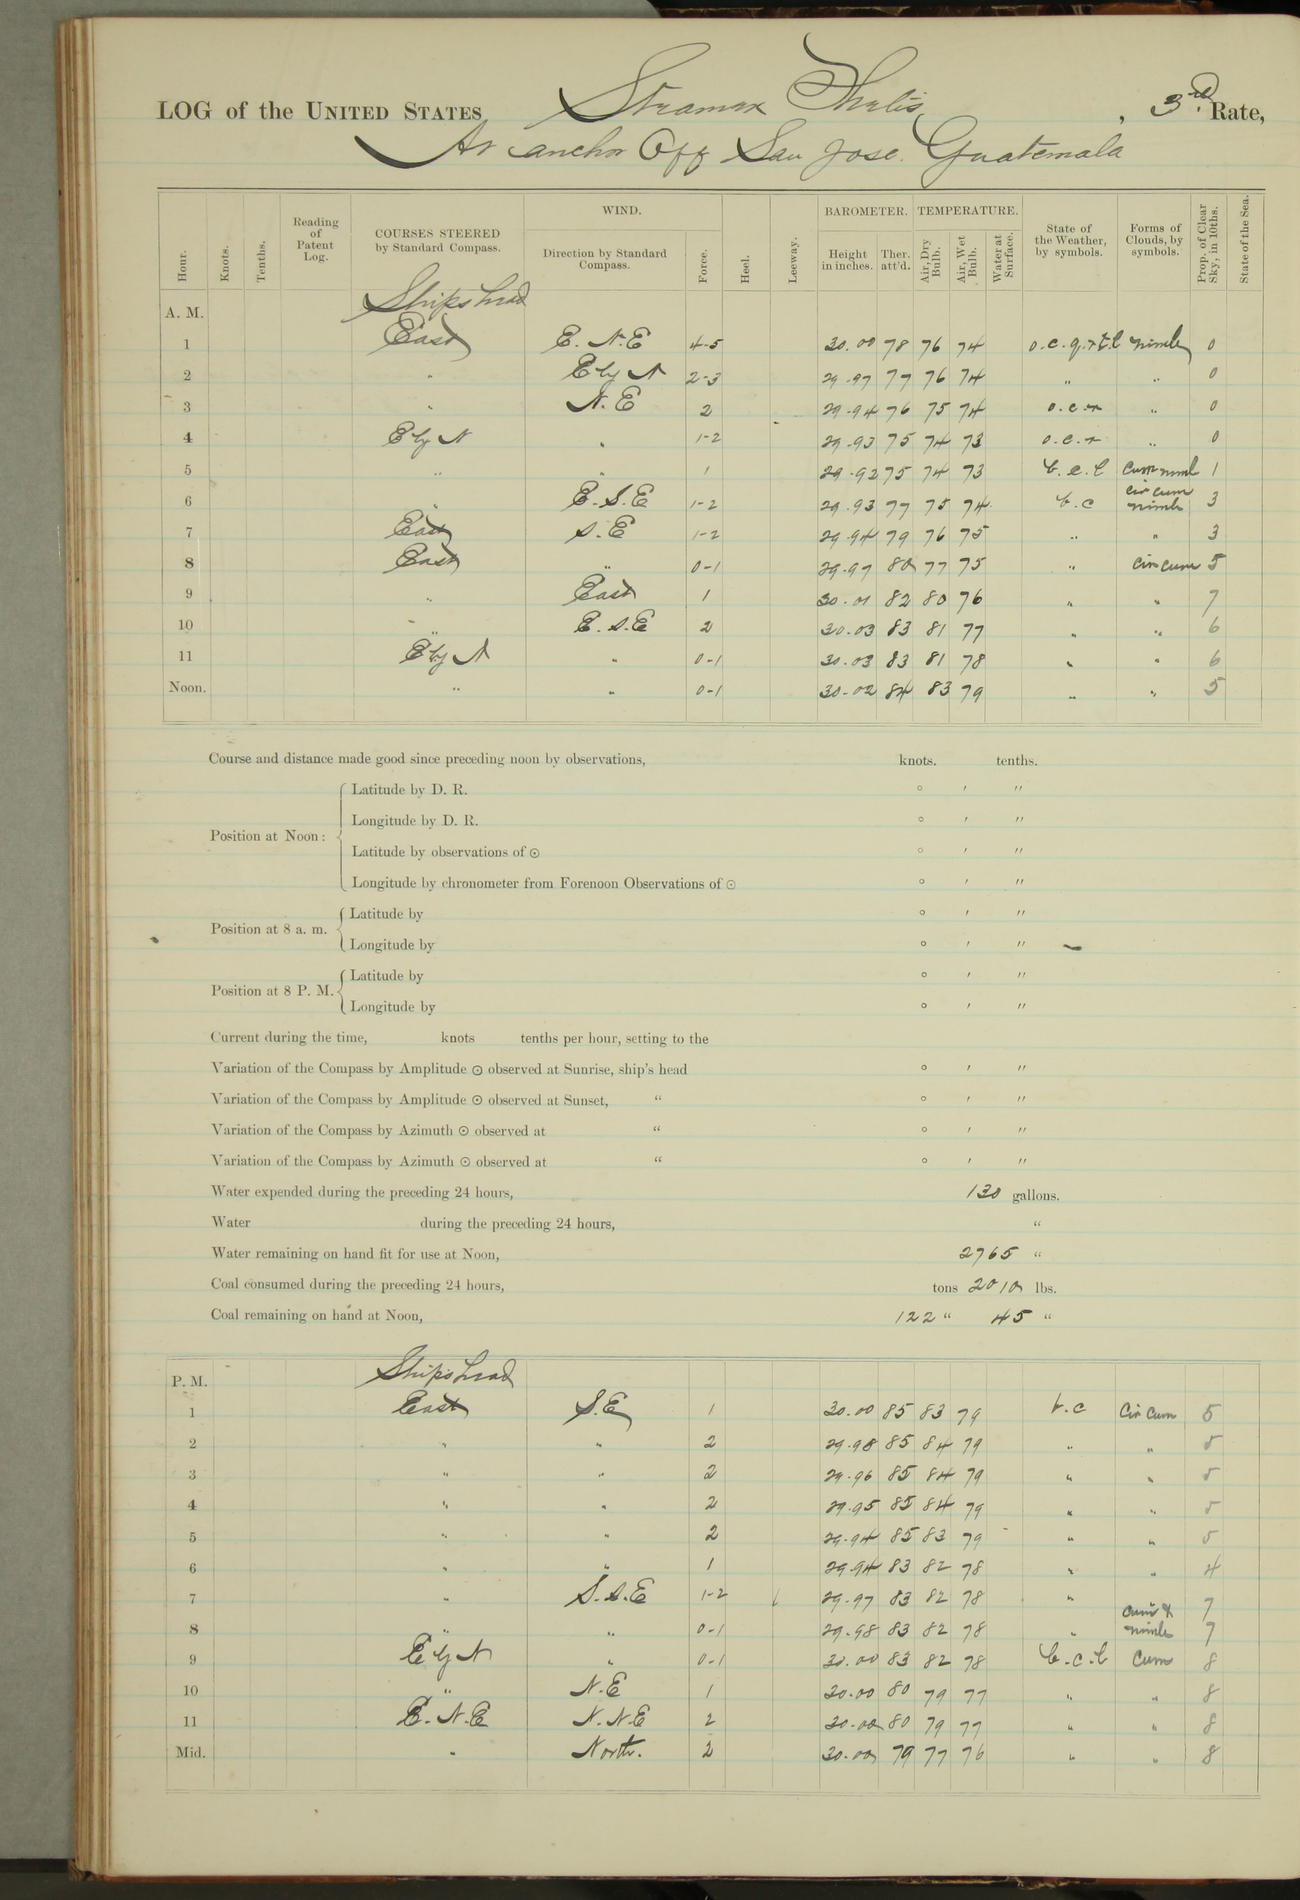 LOG of the UNITED STATES Steamer Thetis, , 3rd. Rate,
At anchor Off San Jose. Guatemala
Hour. Knots. Tenths. Reading of Patent Log. COURSES STEERED by Standard Compass. WIND. Direction by Standard Compass. Force. Heel. Leeway. BAROMETER. Height in inches. Ther. att'd. TEMPERATURE. Air, Dry Bulb. Air, Wet Bulb. Water at Surface. State of the Weather, by symbols. Forms of Clouds, by symbols. Prop. of Clear Sky, in 10ths. State of the Sea.
A. M. Ships head
1 East E. N. E 4-5 30.00 78 76 74 o.c.q.r.t.l nimb 0
2 " E by N 2-3 29.97 77 76 74 " " 0
3 " N. E 2 29.94 76 75 74 o.c.r " 0
4 E by N " 1-2 29.93 75 74 73 o.c.r " 0
5 " " 1 29.92 75 74 73 b.c.l cum nimb 1
6 " E. S. E 1-2 29.93 77 75 74 b.c cir cum nimb 3
7 East S. E 1-2 29.94 79 76 75 " " 3
8 East " 0-1 29.97 80 77 75 " cir cum 5
9 " East 1 30.01 82 80 76 " " 7
10 " E. S. E 2 30.03 83 81 77 " " 6
11 E by N " 0-1 30.03 83 81 78 " " 6
Noon. " " 0-1 30.02 84 83 79 " " 5
Course and distance made good since preceding noon by observations, knots. tenths.
Position at Noon:
Latitude by D. R. ° ′ ″
Longitude by D. R. ° ′ ″
Latitude by observations of ⊙ ° ′ ″
Longitude by chronometer from Forenoon Observations of ⊙ ° ′ ″
Position at 8 a. m.
Latitude by ° ′ ″
Longitude by ° ′ ″
Position at 8 P. M.
Latitude by ° ′ ″
Longitude by ° ′ ″
Current during the time, knots tenths per hour, setting to the
Variation of the Compass by Amplitude ⊙ observed at Sunrise, ship's head ° ′ ″
Variation of the Compass by Amplitude ⊙ observed at Sunset, “ ° ′ ″
Variation of the Compass by Azimuth ⊙ observed at “ ° ′ ″
Variation of the Compass by Azimuth ⊙ observed at “ ° ′ ″
Water expended during the preceding 24 hours, 130 gallons.
Water during the preceding 24 hours, “
Water remaining on hand fit for use at Noon, 2765 “
Coal consumed during the preceding 24 hours, tons 2010 lbs.
Coal remaining on hand at Noon, 122 “ 45 “
P. M. Ships head
1 East S. E 1 30.00 85 83 79 b.c Cir Cum 5
2 " " 2 29.98 85 84 79 " " 5
3 " " 2 29.96 85 84 79 " " 5
4 " " 2 29.95 85 84 79 " " 5
5 " " 2 29.94 85 83 79 " " 5
6 " " 1 29.94 83 82 78 " " 4
7 " S. S. E 1-2 29.97 83 82 78 " 7
8 " " 0-1 29.98 83 82 78 " cum & nimb 7
9 E by N " 0-1 30.00 83 82 78 b.c.l Cum 8
10 " N. E 1 30.00 80 79 77 " " 8
11 E. N. E N. N. E 2 30.00 80 79 77 " " 8
Mid. " North. 2 30.00 79 77 76 " " 8